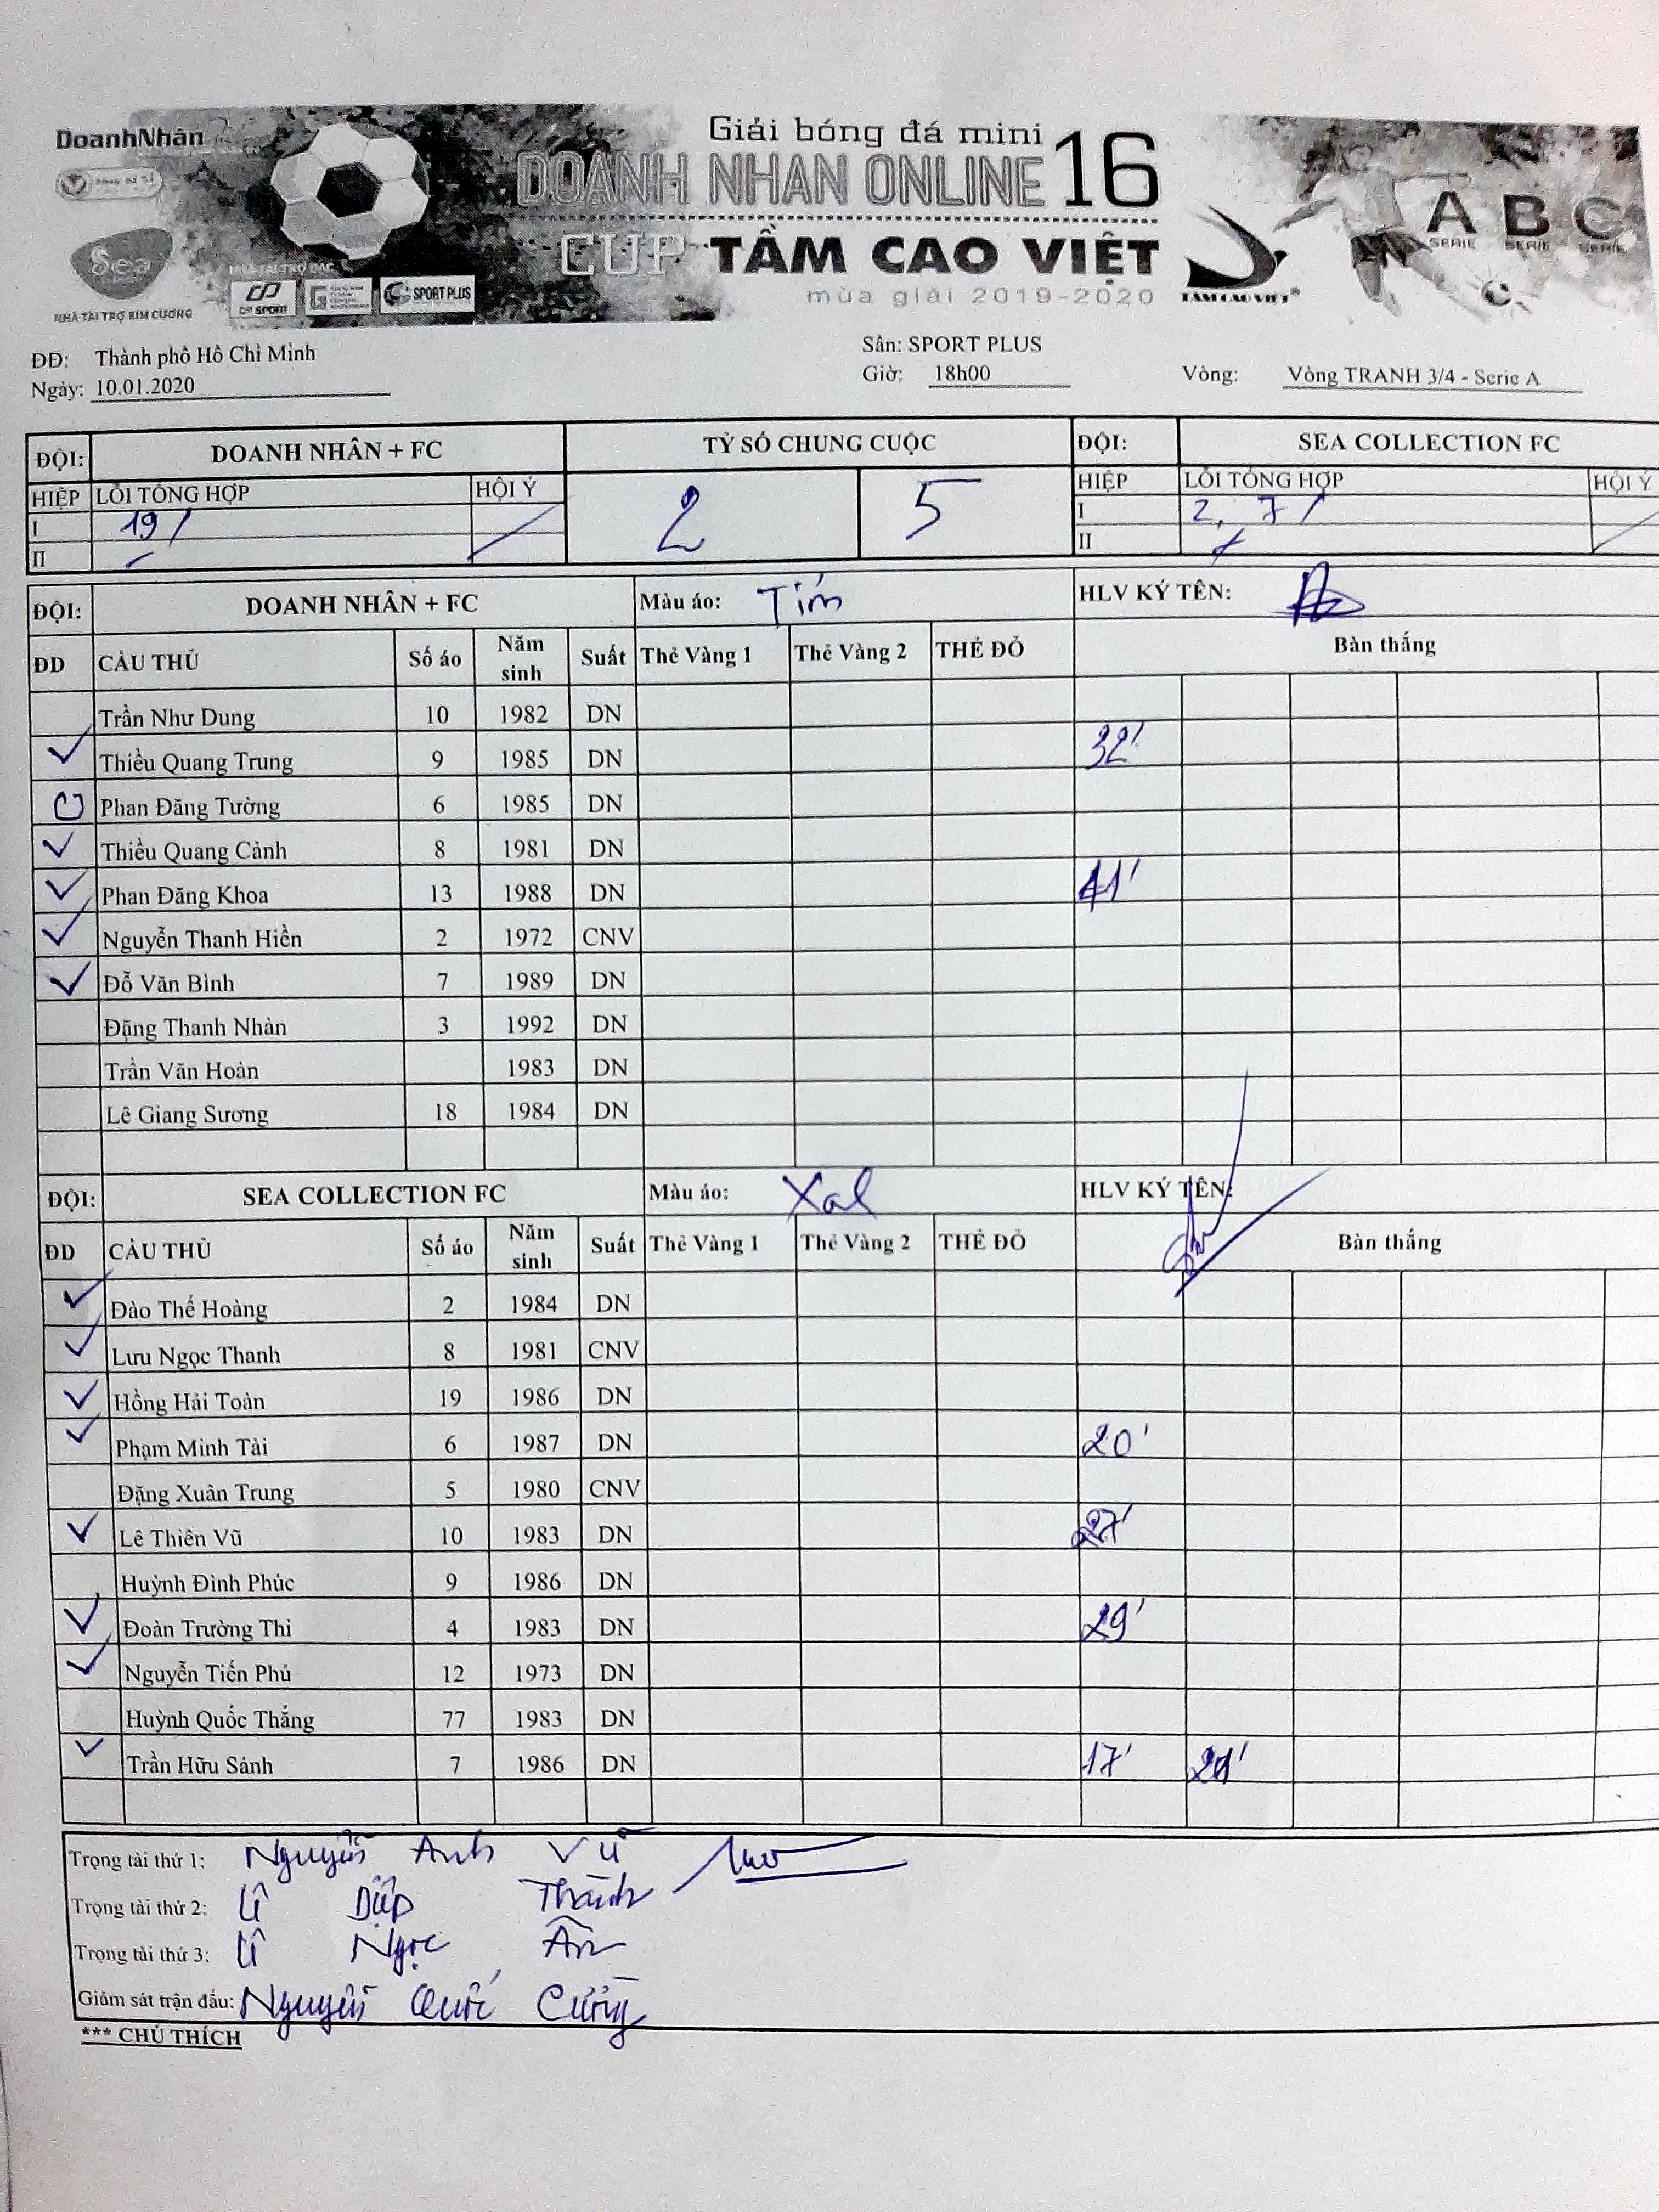 DoanhNhân
Giải bóng đá mini
DOANH NHAN ONLINE 16
CUP TẦM CAO VIỆT
mùa giải 2019-2020
A B C
SERIE SERIE SERIE
Sea
NHÀ TÀI TRỢ KIM CƯƠNG
NHÀ TÀI TRỢ BẠC
CP SPORT
SPORT PLUS
TAM CAO VIET
ĐĐ: Thành phố Hồ Chí Minh Sân: SPORT PLUS
Ngày: 10.01.2020 Giờ: 18h00 Vòng: Vòng TRANH 3/4 - Serie A
ĐỘI: DOANH NHÂN + FC TỶ SỐ CHUNG CUỘC ĐỘI: SEA COLLECTION FC
HIỆP LỖI TỔNG HỢP HỘI Ý 2 5 HIỆP LỖI TỔNG HỢP HỘI Ý
I 19/ I 2, 7/
II II
ĐỘI: DOANH NHÂN + FC Màu áo: Tím HLV KÝ TÊN:
ĐD CẦU THỦ Số áo Năm sinh Suất Thẻ Vàng 1 Thẻ Vàng 2 THẺ ĐỎ Bàn thắng
Trần Như Dung 10 1982 DN
Thiều Quang Trung 9 1985 DN 32'
Phan Đăng Tường 6 1985 DN
Thiều Quang Cảnh 8 1981 DN
Phan Đăng Khoa 13 1988 DN 41'
Nguyễn Thanh Hiền 2 1972 CNV
Đỗ Văn Bình 7 1989 DN
Đặng Thanh Nhàn 3 1992 DN
Trần Văn Hoàn 1983 DN
Lê Giang Sương 18 1984 DN
ĐỘI: SEA COLLECTION FC Màu áo: HLV KÝ TÊN:
ĐD CẦU THỦ Số áo Năm sinh Suất Thẻ Vàng 1 Thẻ Vàng 2 THẺ ĐỎ Bàn thắng
Đào Thế Hoàng 2 1984 DN
Lưu Ngọc Thanh 8 1981 CNV
Hồng Hải Toàn 19 1986 DN
Phạm Minh Tài 6 1987 DN 20'
Đặng Xuân Trung 5 1980 CNV
Lê Thiên Vũ 10 1983 DN 27'
Huỳnh Đình Phúc 9 1986 DN
Đoàn Trường Thi 4 1983 DN 29'
Nguyễn Tiến Phú 12 1973 DN
Huỳnh Quốc Thắng 77 1983 DN
Trần Hữu Sánh 7 1986 DN 17'
Trọng tài thứ 1: Nguyễn Anh Vũ
Trọng tài thứ 2: Lê Diệp Thành
Trọng tài thứ 3: Lê Ngọc Ân
Giám sát trận đấu: Nguyễn Quốc Cường
*** CHÚ THÍCH